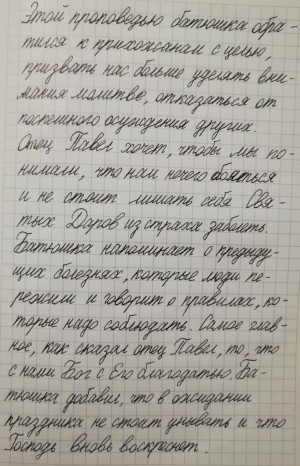 Этой проповедью батюшка обра-
тился к прихожанам с целью,
призвать нас больше уделять вни-
мания молитве, отказаться от
поспешного осуждения других.
Отец Павел хочет, чтобы мы по-
нимали, что нам нечего бояться
и не стоит лишать себя Свя-
тых Даров из страха заболеть.
Батюшка напоминает о предыду-
щих болезнях, которые люди пе-
режили и говорит о правилах, ко-
торые надо соблюдать. Самое глав-
ное, как сказал отец Павел, то, что
с нами Бог с Его благодатью. Ба-
тюшка добавил, что в ожидании
праздника не стоит унывать и что
Господь вновь воскреснет.